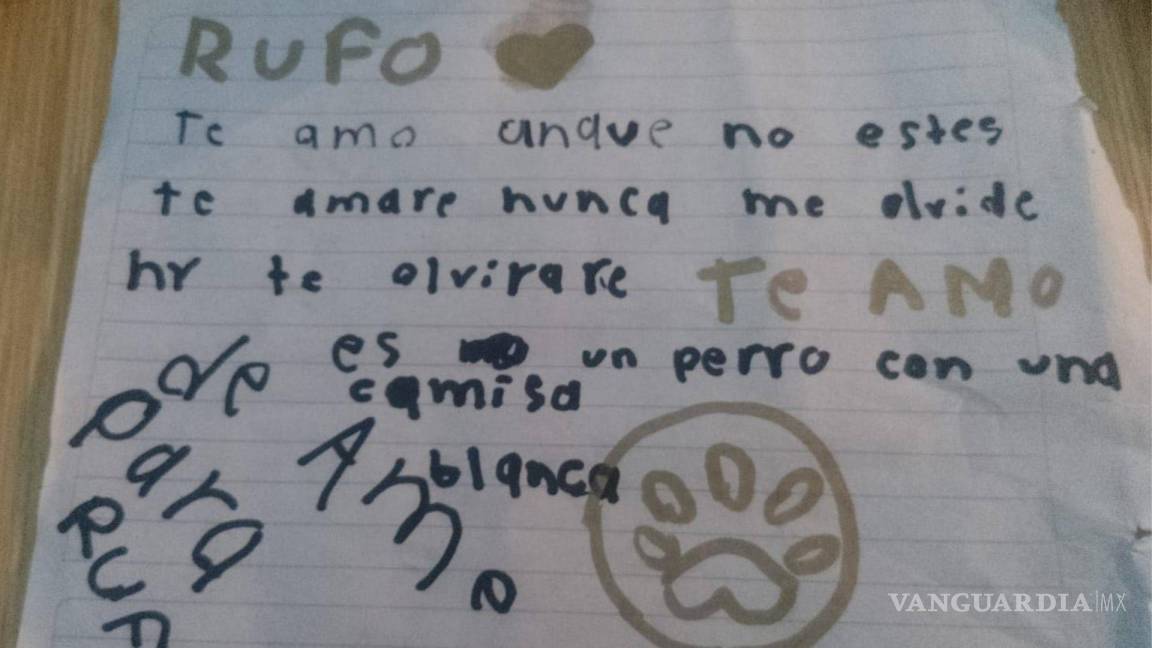 RUFO
Te amo anque no estes
te amare nunca me olvide
hr te olvirare TE AMO
es no un perro con una
camisa
blanca
de
Para
RUF
VANGUARDIA|MX